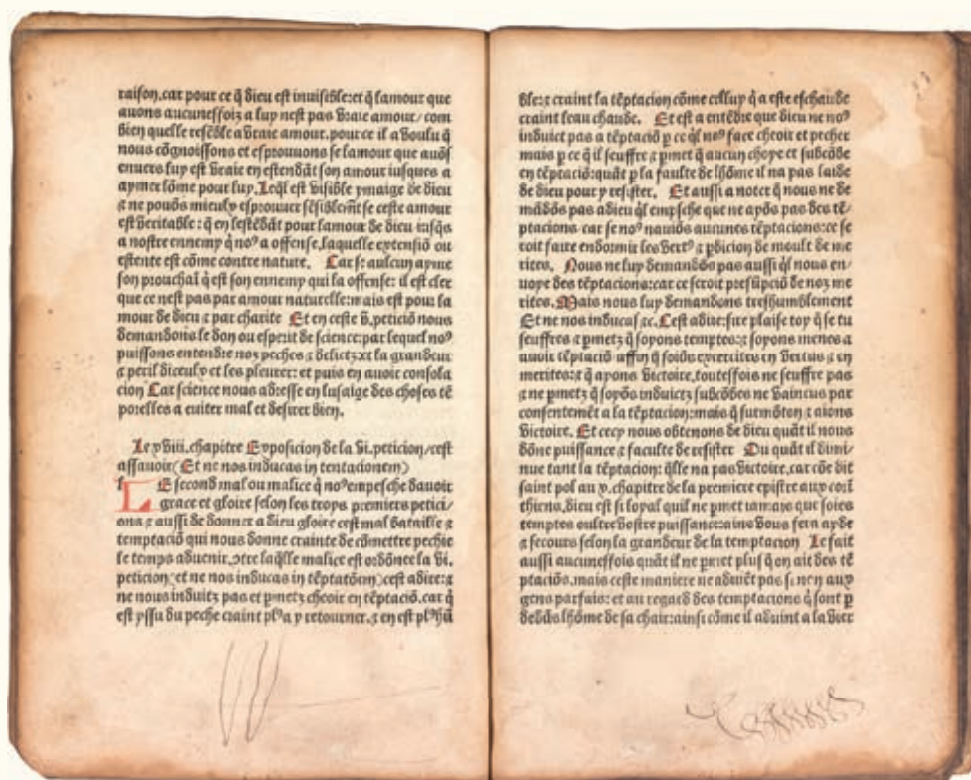 raison.car pour ce q̄ dieu est inuisible:et q̄ lamour que
auons aucuneffoiz a luy nest pas vraie amour/com
bien quelle resēble a vraie amour.pource il a voulu q̄
nous cōgnoissons et esprouuons se lamour que auōs
enuers luy est vraie en estendāt son amour iusques a
aymer lōme pour luy.Leql̄ est visible ymaige de dieu
⁊ ne pouōs mieulx esprouuer sēsiblemt̄ se ceste amour
est veritable:q̄ en lestēdāt pour lamour de dieu iusq̄s
a nostre ennemy q̄ noꝰ a offense.laquelle extensiō ou
estente est cōme contre nature. Car se aulcun ayme
son prouchaī q̄ est son ennemy qui la offense: il est cler
que ce nest pas par amour naturelle:mais est pour la
mour de dieu ⁊ par charite Et en ceste v̄.peticiō nous
demandons le don ou esperit de science:par lequel noꝰ
puissons entendre noz peches ⁊ delictz:et la grandeur
⁊ peril diceulx et les pleurer: et puis en auoir consola
cion Car science nous adresse en lusaige des choses tē
porelles a euiter mal et desirer bien.
Le xviii.chapitre Exposicion de la vi.peticion/cest
assauoir(Et ne nos inducas in tentacionem)
l LE second mal ou malice q̄ noꝰ empesche dauoir
grace et gloire selon les troys premiers petici/
ons ⁊ aussi de donner a dieu gloire cest mal bataille ⁊
temptaciō qui nous donne crainte de cōmettre pechie
le temps aduenir.ↄtre laq̄lle malice est ordōnee la vi.
peticion(et ne nos inducas in tēptatōnē)cest adire:⁊
ne nous induitz pas et pmetz cheoir en tēptaciō.car q̄
est yssu du peche craint plꝰ a y retourner.⁊ en est plꝰ hū
ble:⁊ craint la tēptacion cōme celluy q̄ a este eschaude
craint leau chaude. Et est a entēdre que dieu ne noꝰ
induict pas a tēptaciō p ce ql̄ noꝰ face cheoir et pecher
mais p ce q̄ il seuffre ⁊ pmet q̄ aucun choye et subcōbe
en tēptaciō:quāt p la faulte de lhōme il na pas laide
de dieu pour y resister. Et aussi a noter q̄ nous ne de
mādōs pas a dieu ql̄ empsche que ne ayōs pas des tē/
ptacions car se noꝰ nauiōs aucunes tēptacions:ce se
roit faire endormir les vertꝰ ⁊ pdicion de moult de me
rites. Nous ne luy demandōs pas aussi ql̄ nous en/
uoye des tēptacions:car ce seroit presūpciō de noz me
rites.Mais nous luy demandons treshumblement
Et ne nos inducas ⁊c.Cest adire:sire plaise toy q̄ se tu
seuffres ⁊ pmetz q̄ soyons temptes:⁊ soyons menes a
auoir tēptaciō affin q̄ soiōs exercites en vertus ⁊ en
merites:⁊ q̄ ayons victoire.toutesfois ne seuffre pas
⁊ ne pmetz q̄ soyōs induictz subcōbes ne vaincus par
consentemēt a la tēptacion:mais q̄ surmōtōn ⁊ aions
victoire. Et cecy nous obtenons de dieu quāt il nous
dōne puissance ⁊ faculte de resister Ou quāt il dimi
nue tant la tēptacion: q̄lle na pas victoire.car cōe dit
saint pol au x.chapitre de la premiere epistre aux corī
thiens.dieu est si loyal quil ne pmet iamais que soies
temptes oultre vostre puissance:ains vous fera ayde
⁊ secours selon la grandeur de la temptacion Le fait
aussi aucuneffois quāt il ne pmet plus q̄ on ait des tē
ptaciōs.mais ceste maniere ne aduiēt pas si nen aux
gens parfais: et au regard des temptacions q̄ sont p
dedās lhōme de sa chair:ainsi cōme il aduint a la vier